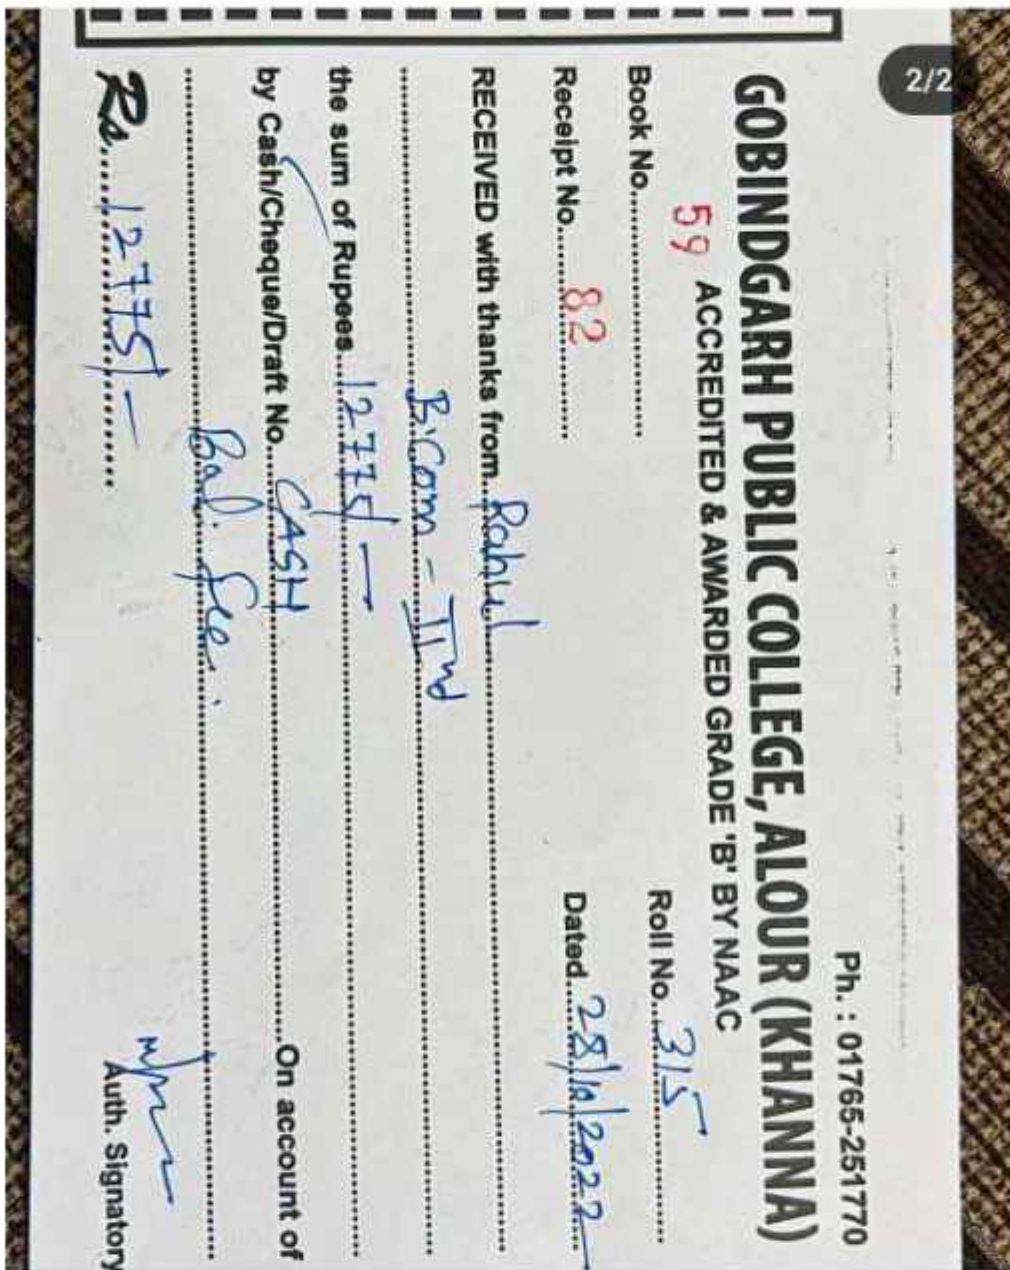 2/2
Ph. : 01765-251770
GOBINDGARH PUBLIC COLLEGE, ALOUR (KHANNA)
59 ACCREDITED & AWARDED GRADE 'B' BY NAAC
Book No. Roll No. 315
Receipt No. 82 Dated 28/10/2022
RECEIVED with thanks from Rahul
B.Com - IInd
the sum of Rupees 12775/-
by Cash/Cheque/Draft No. CASH On account of
Bal. fee.
Rs. 12775/-
Auth. Signatory